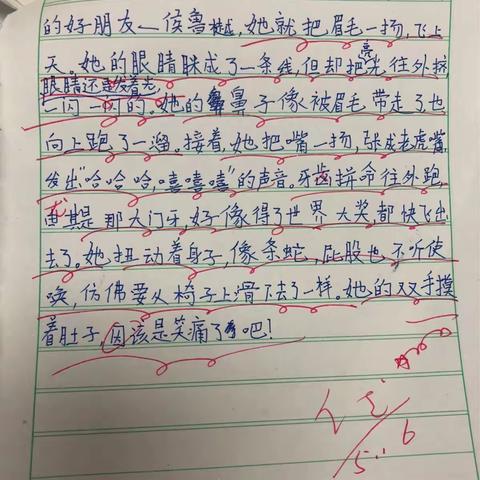 的好朋友—侯鲁越,她就把眉毛一扬,飞上
天。她的眼睛眯成了一条线,但却把亮光往外挤
眼睛还是发着光
一闪一闪的。她的鼻子像被眉毛带走了也
向上跑了一溜。接着,她把嘴一扬,张成老虎嘴
发出"哈哈哈,嘻嘻嘻"的声音。牙齿拼命往外跑,
尤其是那大门牙,好像得了世界大奖,都快飞出
去了。她扭动着身子,像条蛇,屁股也不听使
唤,仿佛要从椅子上滑下去了一样。她的双手摸
着肚子,因该是笑痛了吧!
5.6